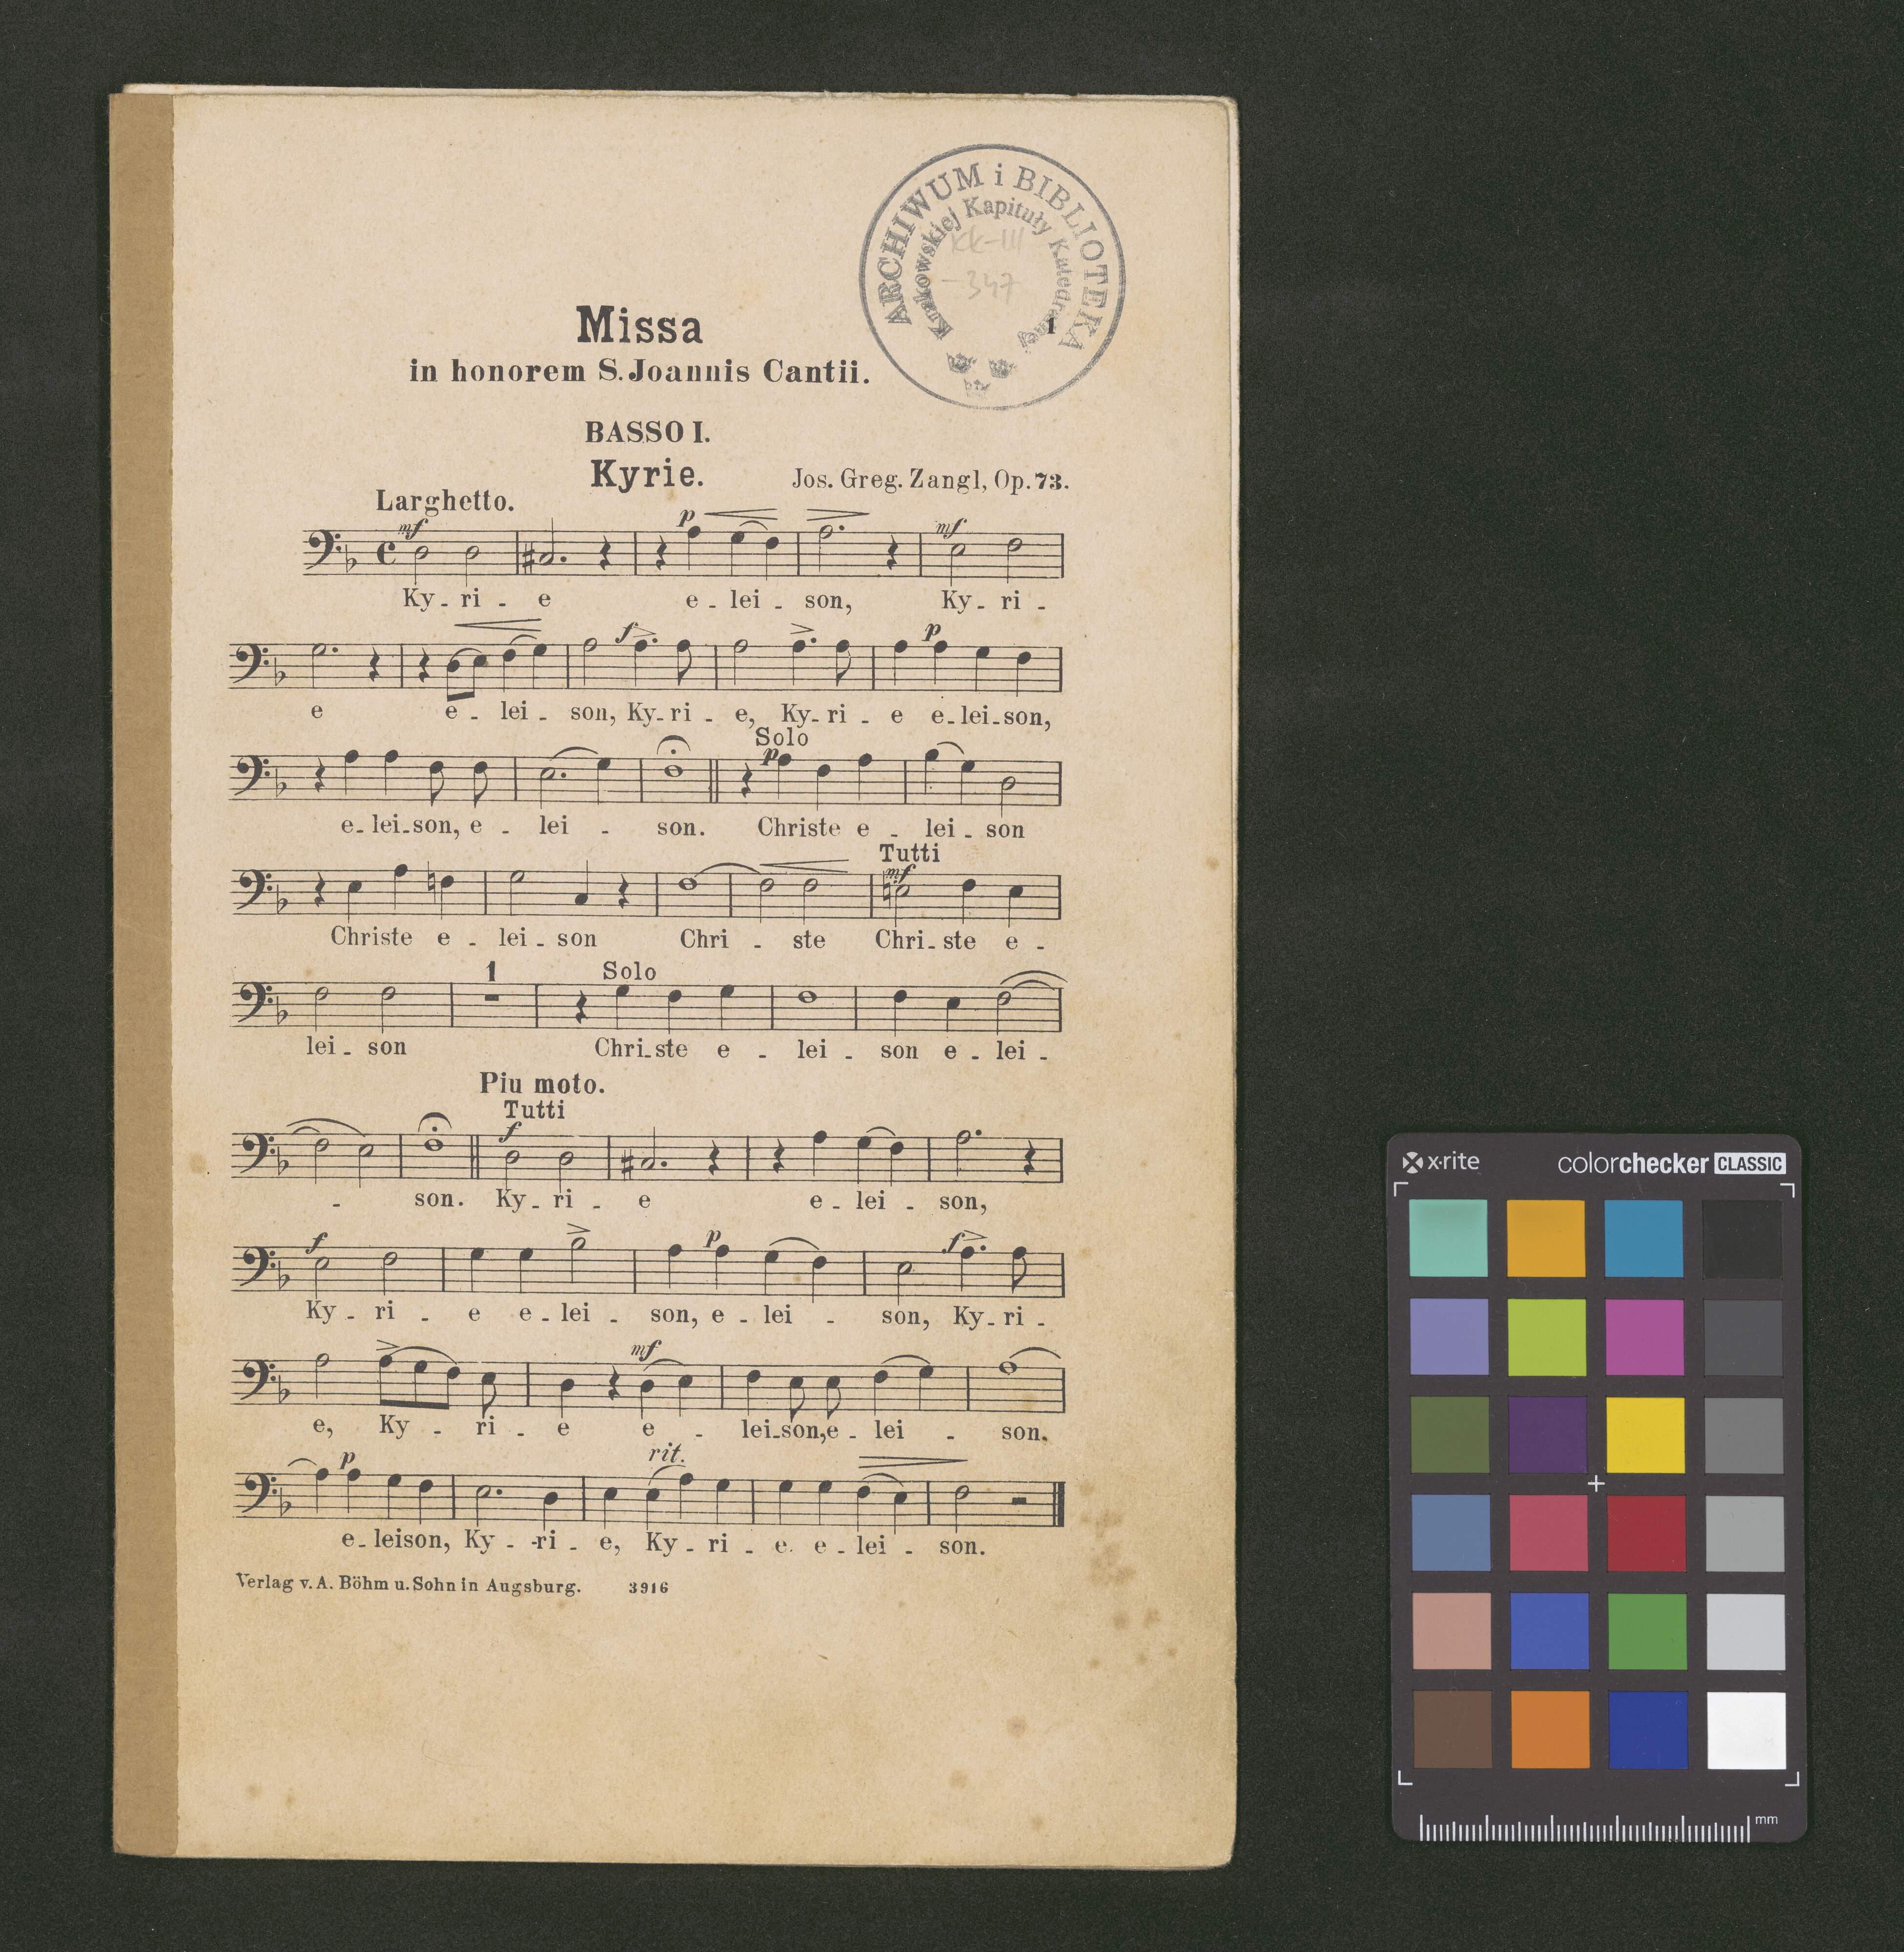 ARCHIWUM i BIBLIOTEKA
Krakowskiej Kapituły Katedralnej
KK-III
-347
1
Missa
in honorem S. Joannis Cantii.
BASSO I.
Kyrie.
Jos. Greg. Zangl, Op. 73.
Larghetto.
mf p mf
Ky - ri - e e - lei - son, Ky - ri -
f p
e e - lei - son, Ky - ri - e, Ky - ri - e e - lei - son,
Solo
p
e - lei - son, e - lei - son. Christe e - lei - son
Tutti
mf
Christe e - lei - son Chri - ste Chri - ste e -
1 Solo
lei - son Chri - ste e - lei - son e - lei -
Piu moto.
Tutti
f
- son. Ky - ri - e e - lei - son,
f p f
Ky - ri - e e - lei - son, e - lei - son, Ky - ri -
mf
e, Ky - ri - e e - lei - son, e - lei - son.
p rit.
e - leison, Ky - - ri - e, Ky - ri - e. e - lei - son.
Verlag v. A. Böhm u. Sohn in Augsburg. 3916
x·rite colorchecker CLASSIC
mm